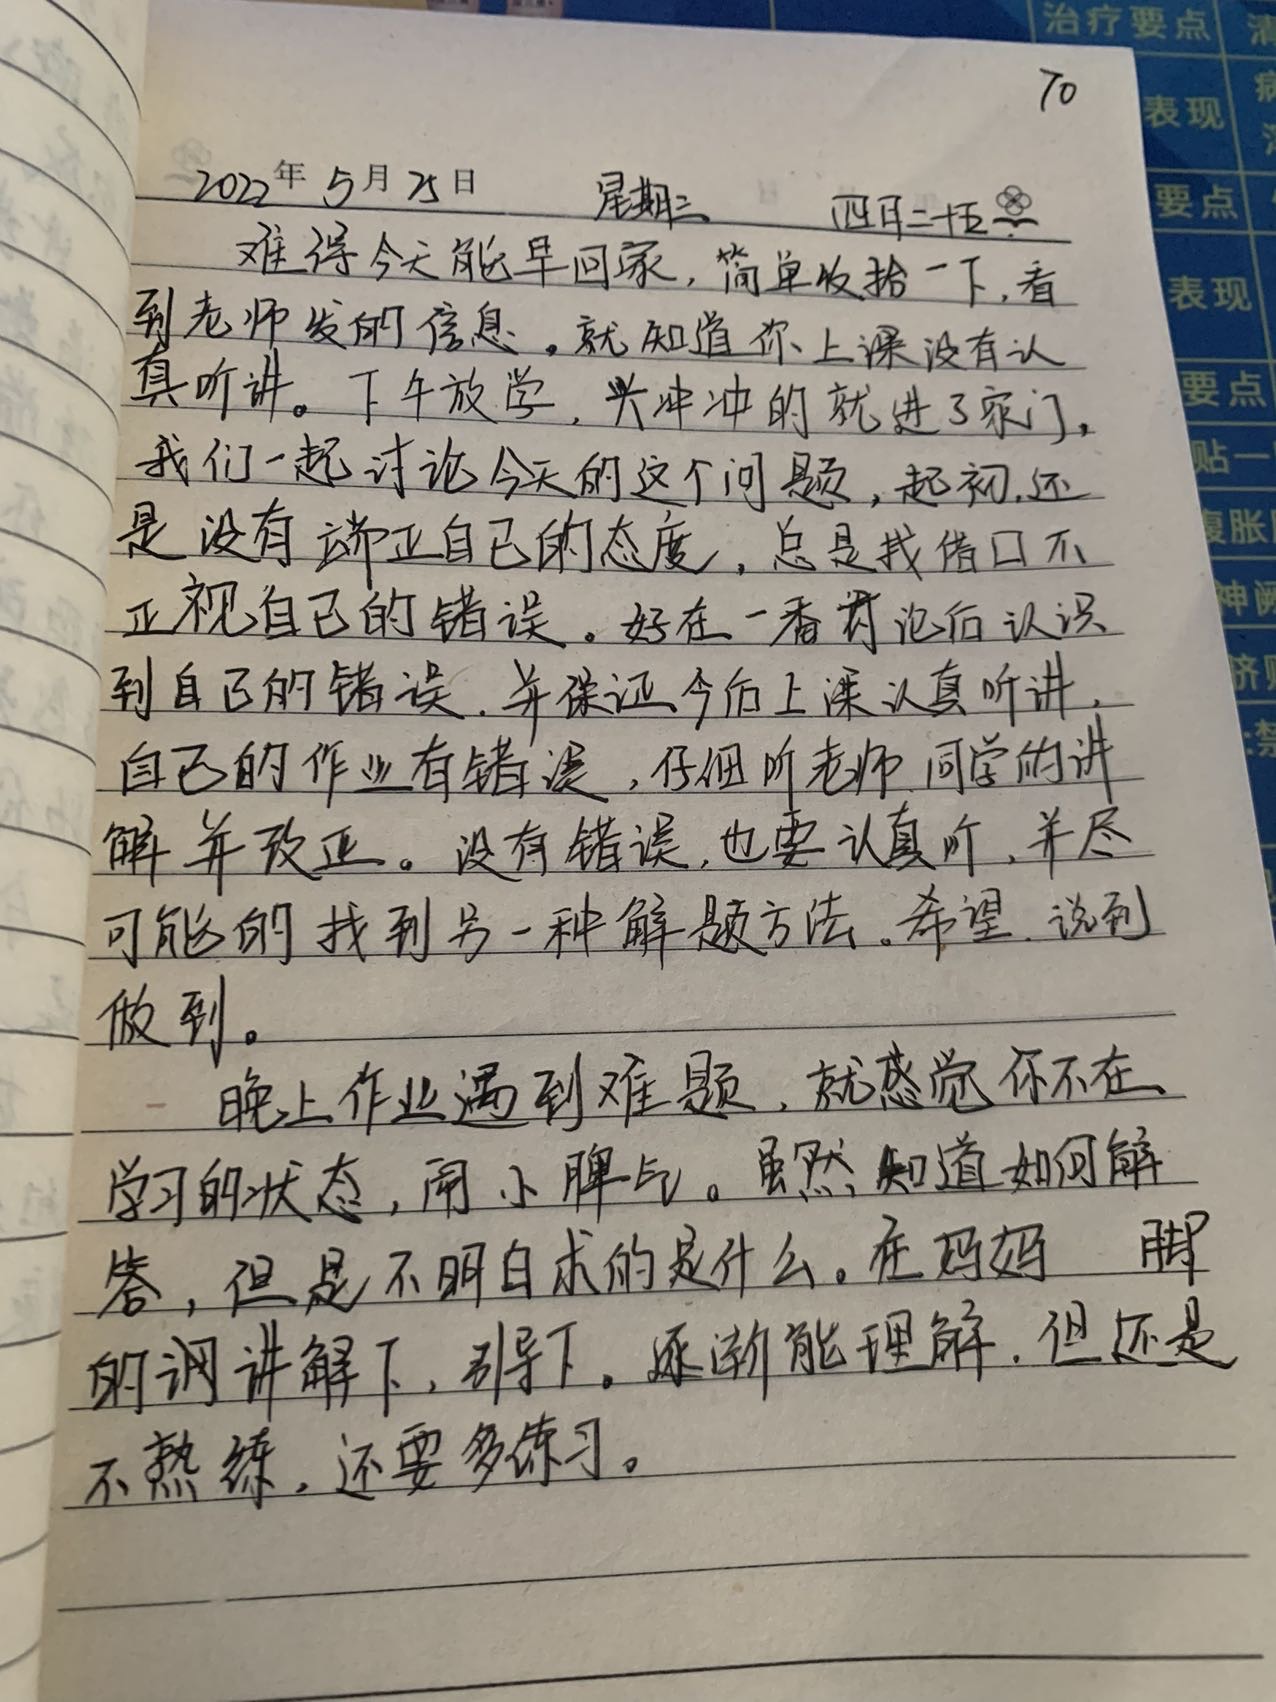 治疗要点
70
表现
2022年5月25日 星期三 四月二十五
要点
难得今天能早回家，简单收拾一下，看
表现
到老师发的信息。就知道你上课没有认
真听讲。下午放学，兴冲冲的就进了家门，
要点
我们一起讨论今天的这个问题，起初还
贴一
是没有端正自己的态度，总是找借口不
腹胀
正视自己的错误。好在一番讨论后认识
神阙
到自己的错误，并保证今后上课认真听讲，
脐贴
自己的作业有错误，仔细听老师同学的讲
禁
解并改正。没有错误，也要认真听，并尽
可能的找到另一种解题方法。希望说到
做到。
晚上作业遇到难题，就感觉你不在
学习的状态，闹小脾气。虽然知道如何解
答，但是不明白求的是什么。在妈妈 脚
的调讲解下，引导下。逐渐能理解，但还是
不熟练，还要多练习。